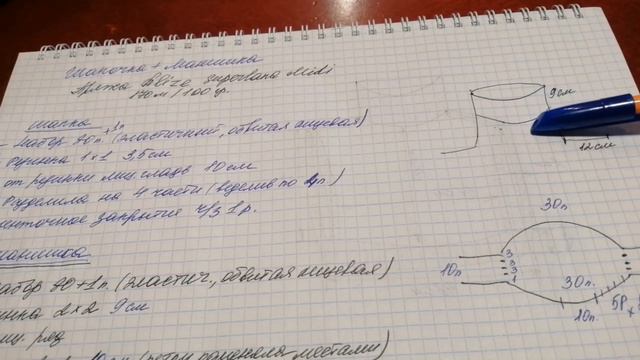 Шапочка + Манишка
Пряжа Alize superlana Midi
170м/100гр.
Шапка
- Набор 70п.+1п (эластичный, обвитая лицевая)
Резинка 1х1 3,5см
от резинки лиц. гладь 10см
Разделила на 4 части (выделив по 1п)
ленточное закрытие ч/з 1р.
манишка
набор 70+1п. (эластич, обвитая лицевая)
резинка 2х2 9см
лиц. ряд
9см
12см
30п.
10п
3
3
3
1
30п.
10п.
5р х